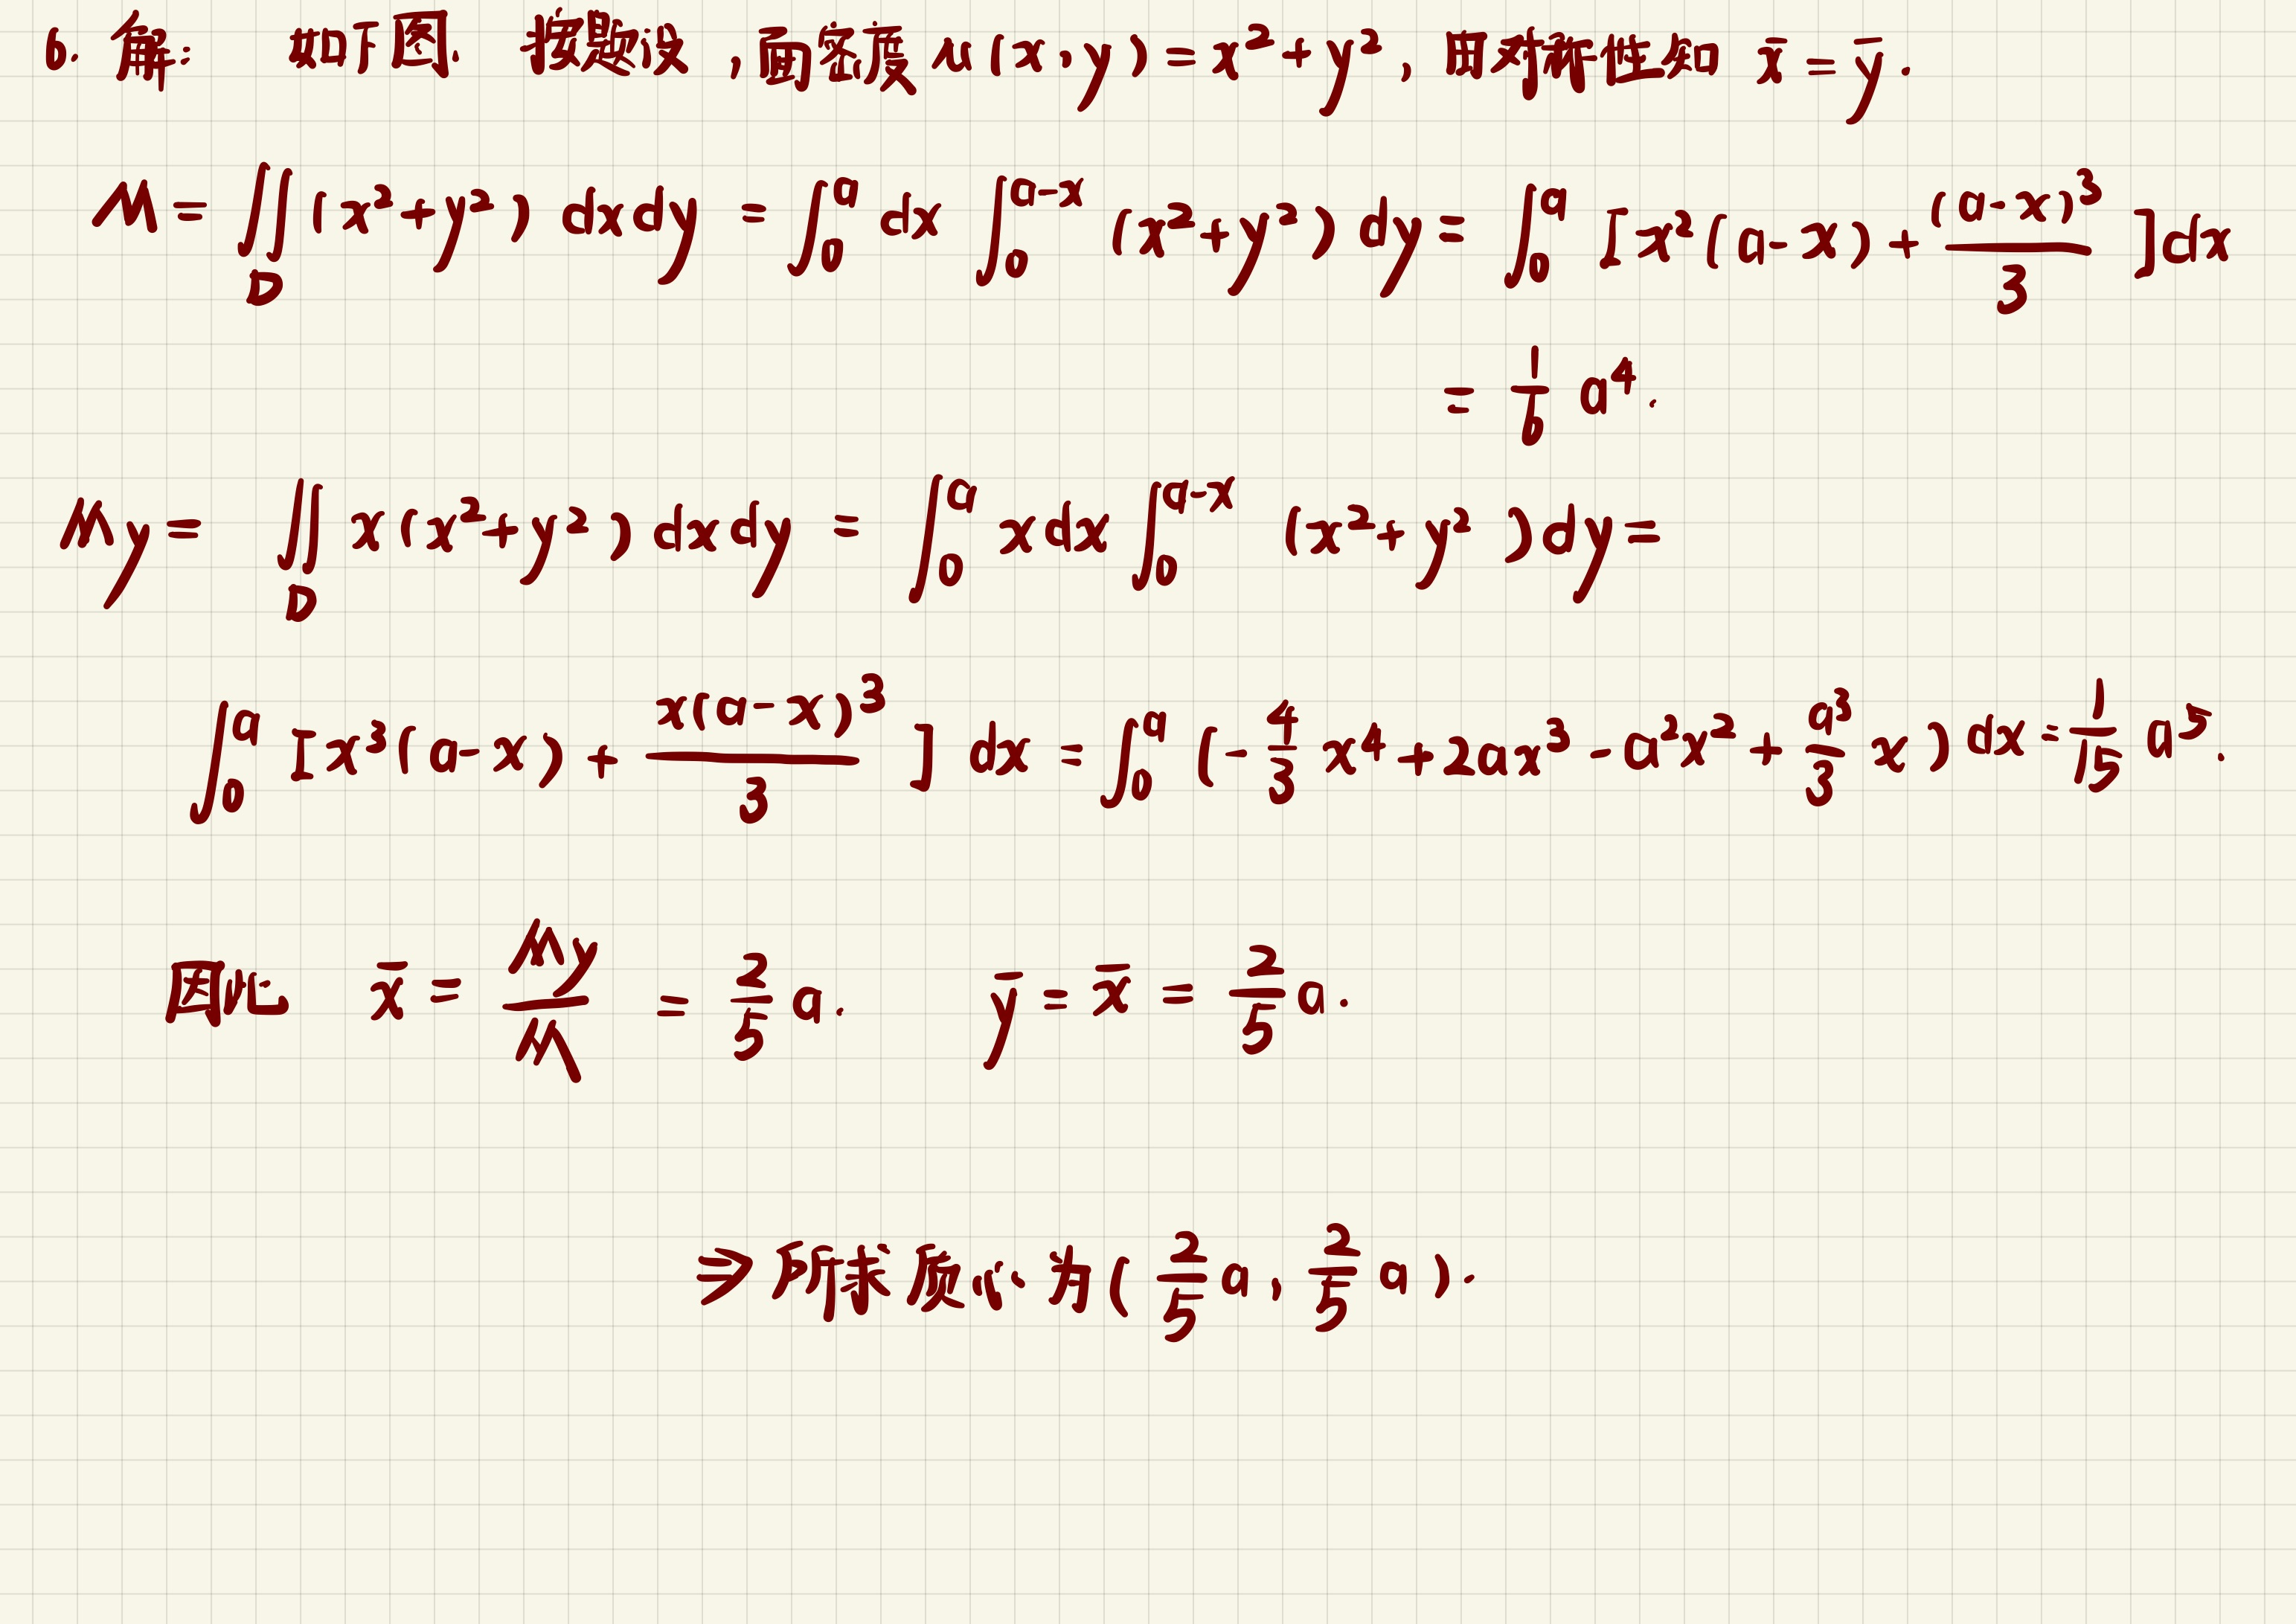 6. 解: 如下图. 按题设, 面密度 μ(x,y) = x² + y², 由对称性知 x̄ = ȳ.
M = ∬_D (x²+y²) dxdy = ∫₀^a dx ∫₀^(a-x) (x²+y²) dy = ∫₀^a [x²(a-x) + (a-x)³/3] dx
= 1/6 a⁴.
My = ∬_D x(x²+y²) dxdy = ∫₀^a xdx ∫₀^(a-x) (x²+y²) dy =
∫₀^a [x³(a-x) + x(a-x)³/3] dx = ∫₀^a (-4/3 x⁴ + 2ax³ - a²x² + a³/3 x) dx = 1/15 a⁵.
因此 x̄ = My/M = 2/5 a. ȳ = x̄ = 2/5 a.
⇒ 所求质心为 (2/5 a, 2/5 a).